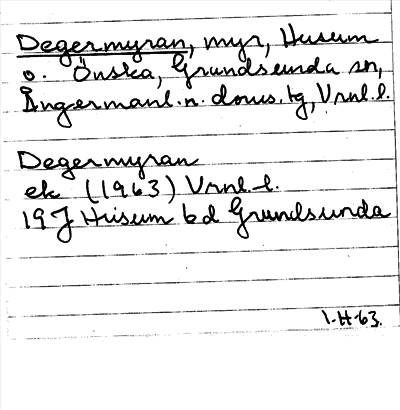 Degermyran, myr, Husum
o. Önska, Grundsunda sn,
Ångermanl. n. doms. tg, Vrnl. l.
Degermyran
ek (1963) Vrnl. l.
19J Husum bd Grundsunda
1-H-63.